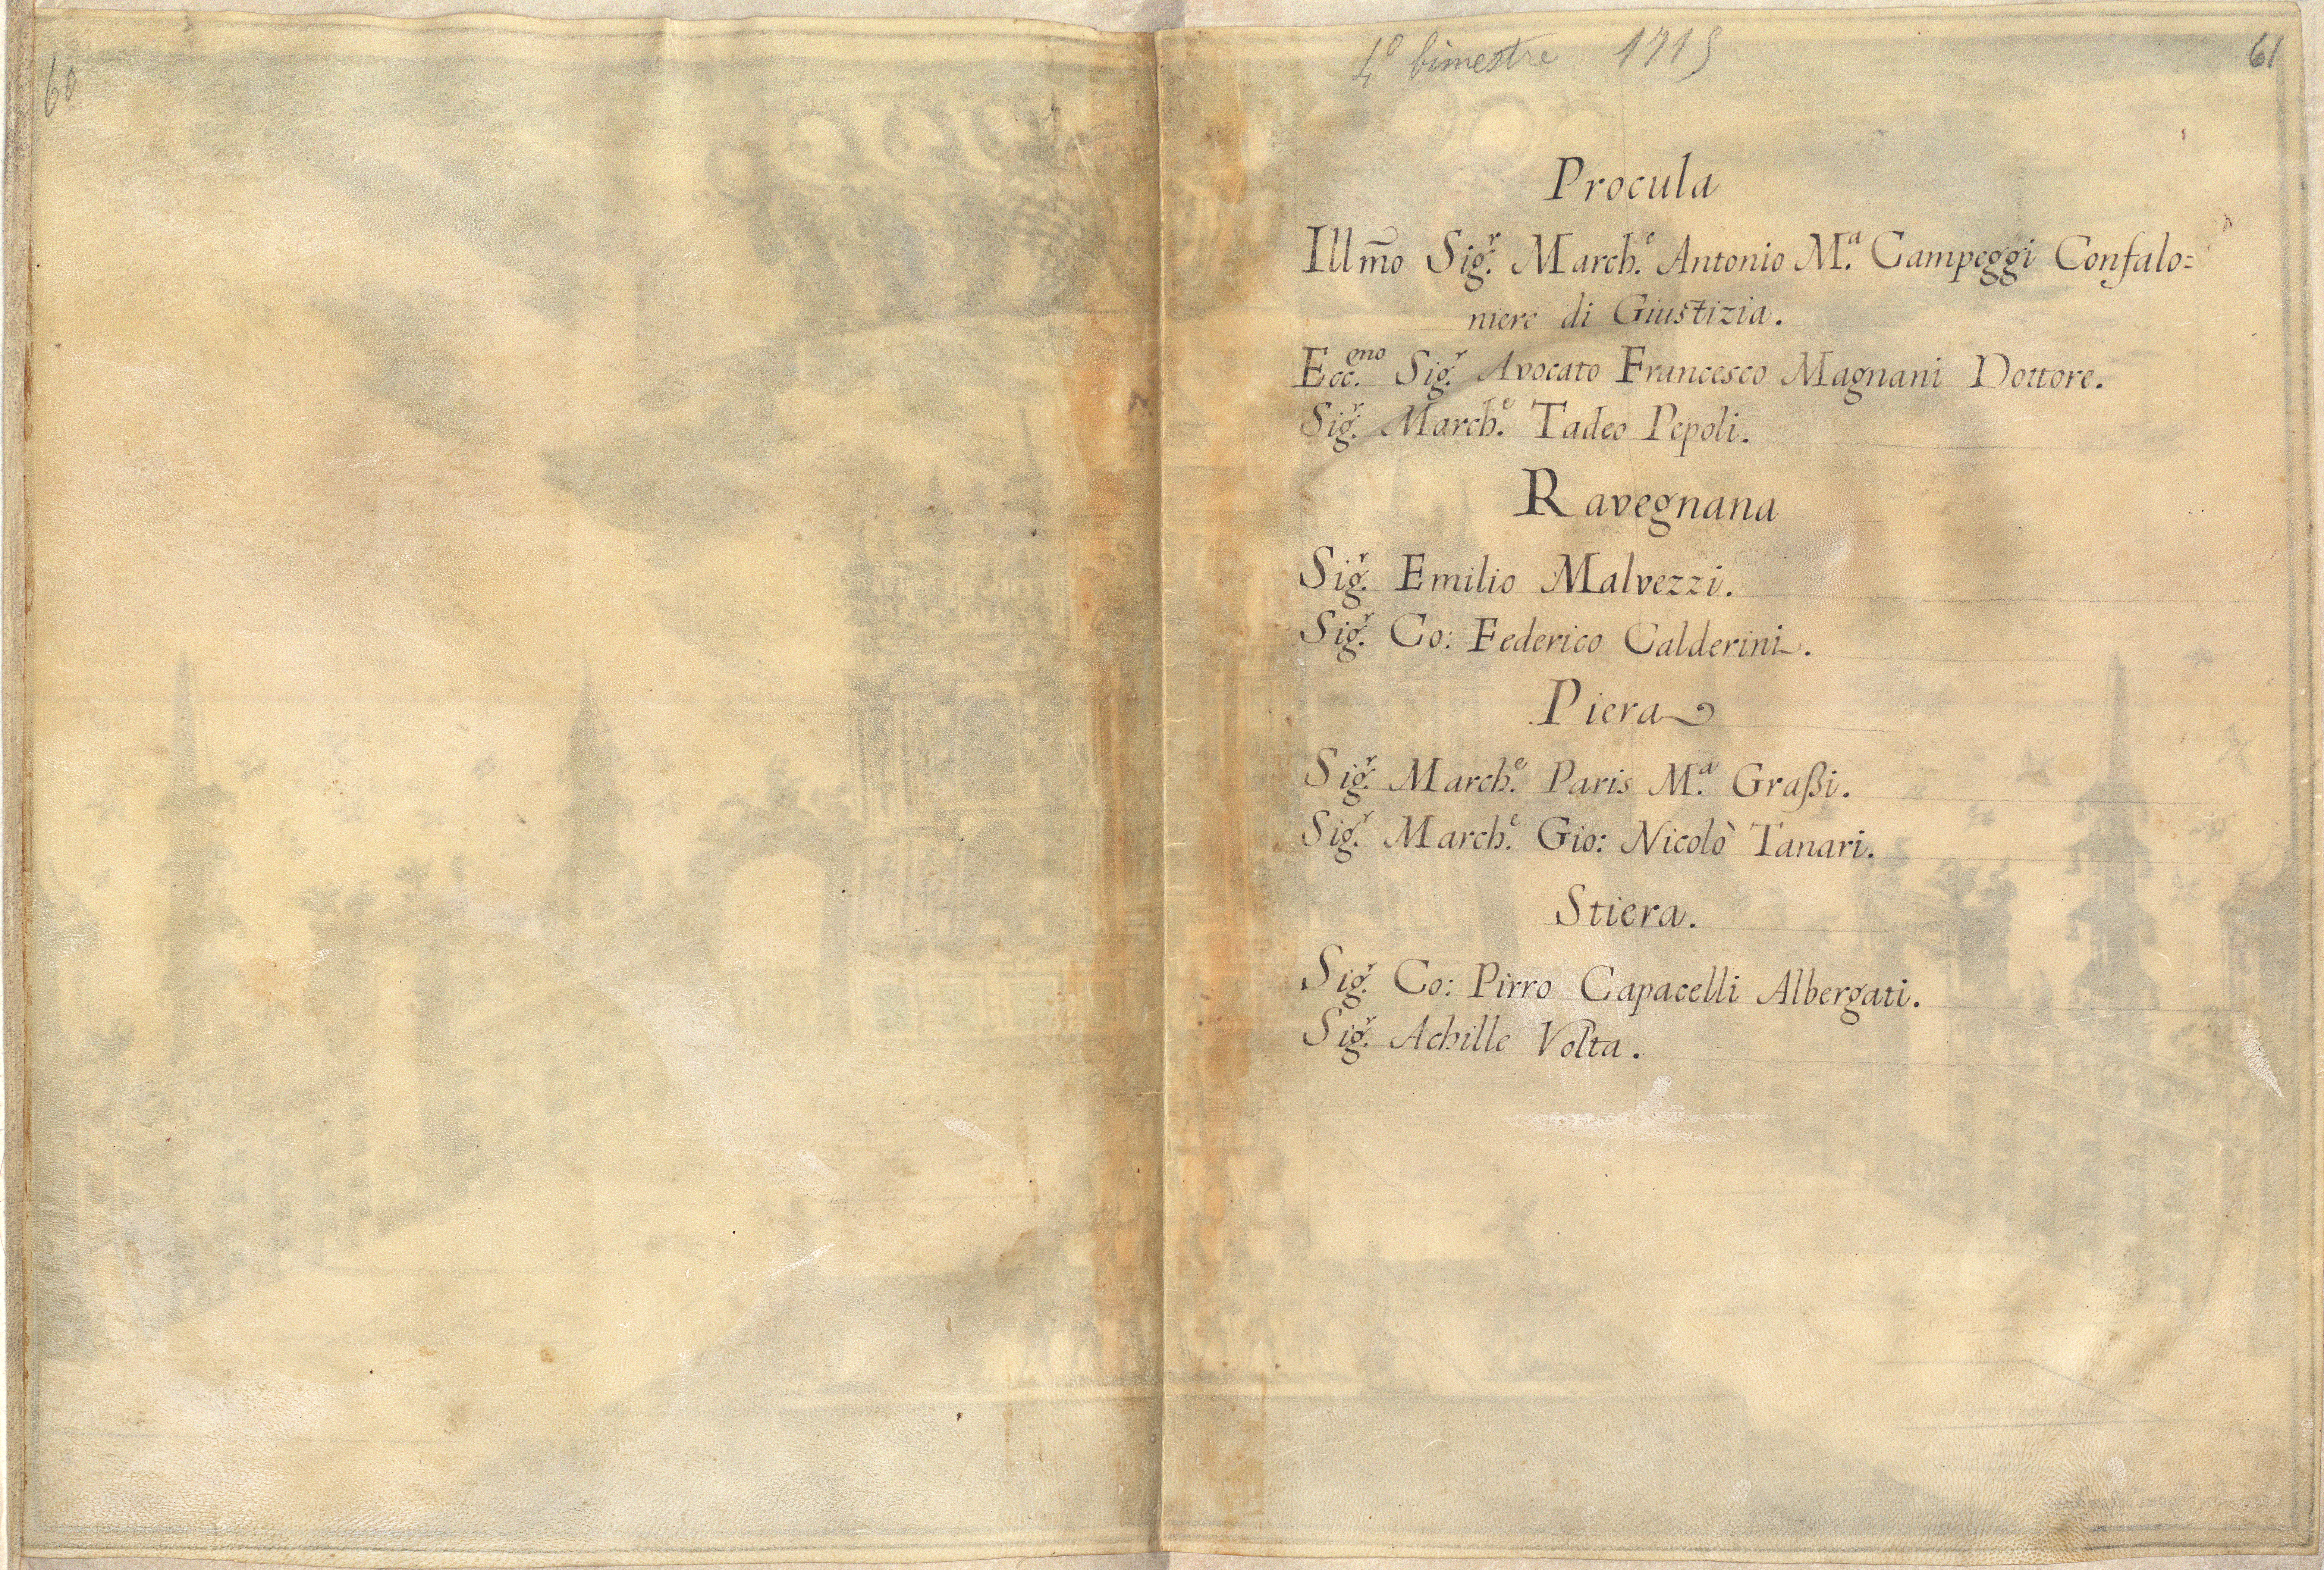 60
4º bimestre 1715
61
Procula
Ill̃mo Sig.ʳ March.ᵉ Antonio M.ᵃ Campeggi Confalo=
niere di Giustizia.
Ecc.ᵐᵒ Sig.ʳ Avocato Francesco Magnani Dottore.
Sig.ʳ March.ᵉ Tadeo Pepoli.
Ravegnana
Sig.ʳ Emilio Malvezzi.
Sig.ʳ Co: Federico Calderini.
Piera
Sig.ʳ March.ᵉ Paris M.ᵃ Graßi.
Sig.ʳ March.ᵉ Gio: Nicolò Tanari.
Stiera.
Sig.ʳ Co: Pirro Capacelli Albergati.
Sig.ʳ Achille Volta.